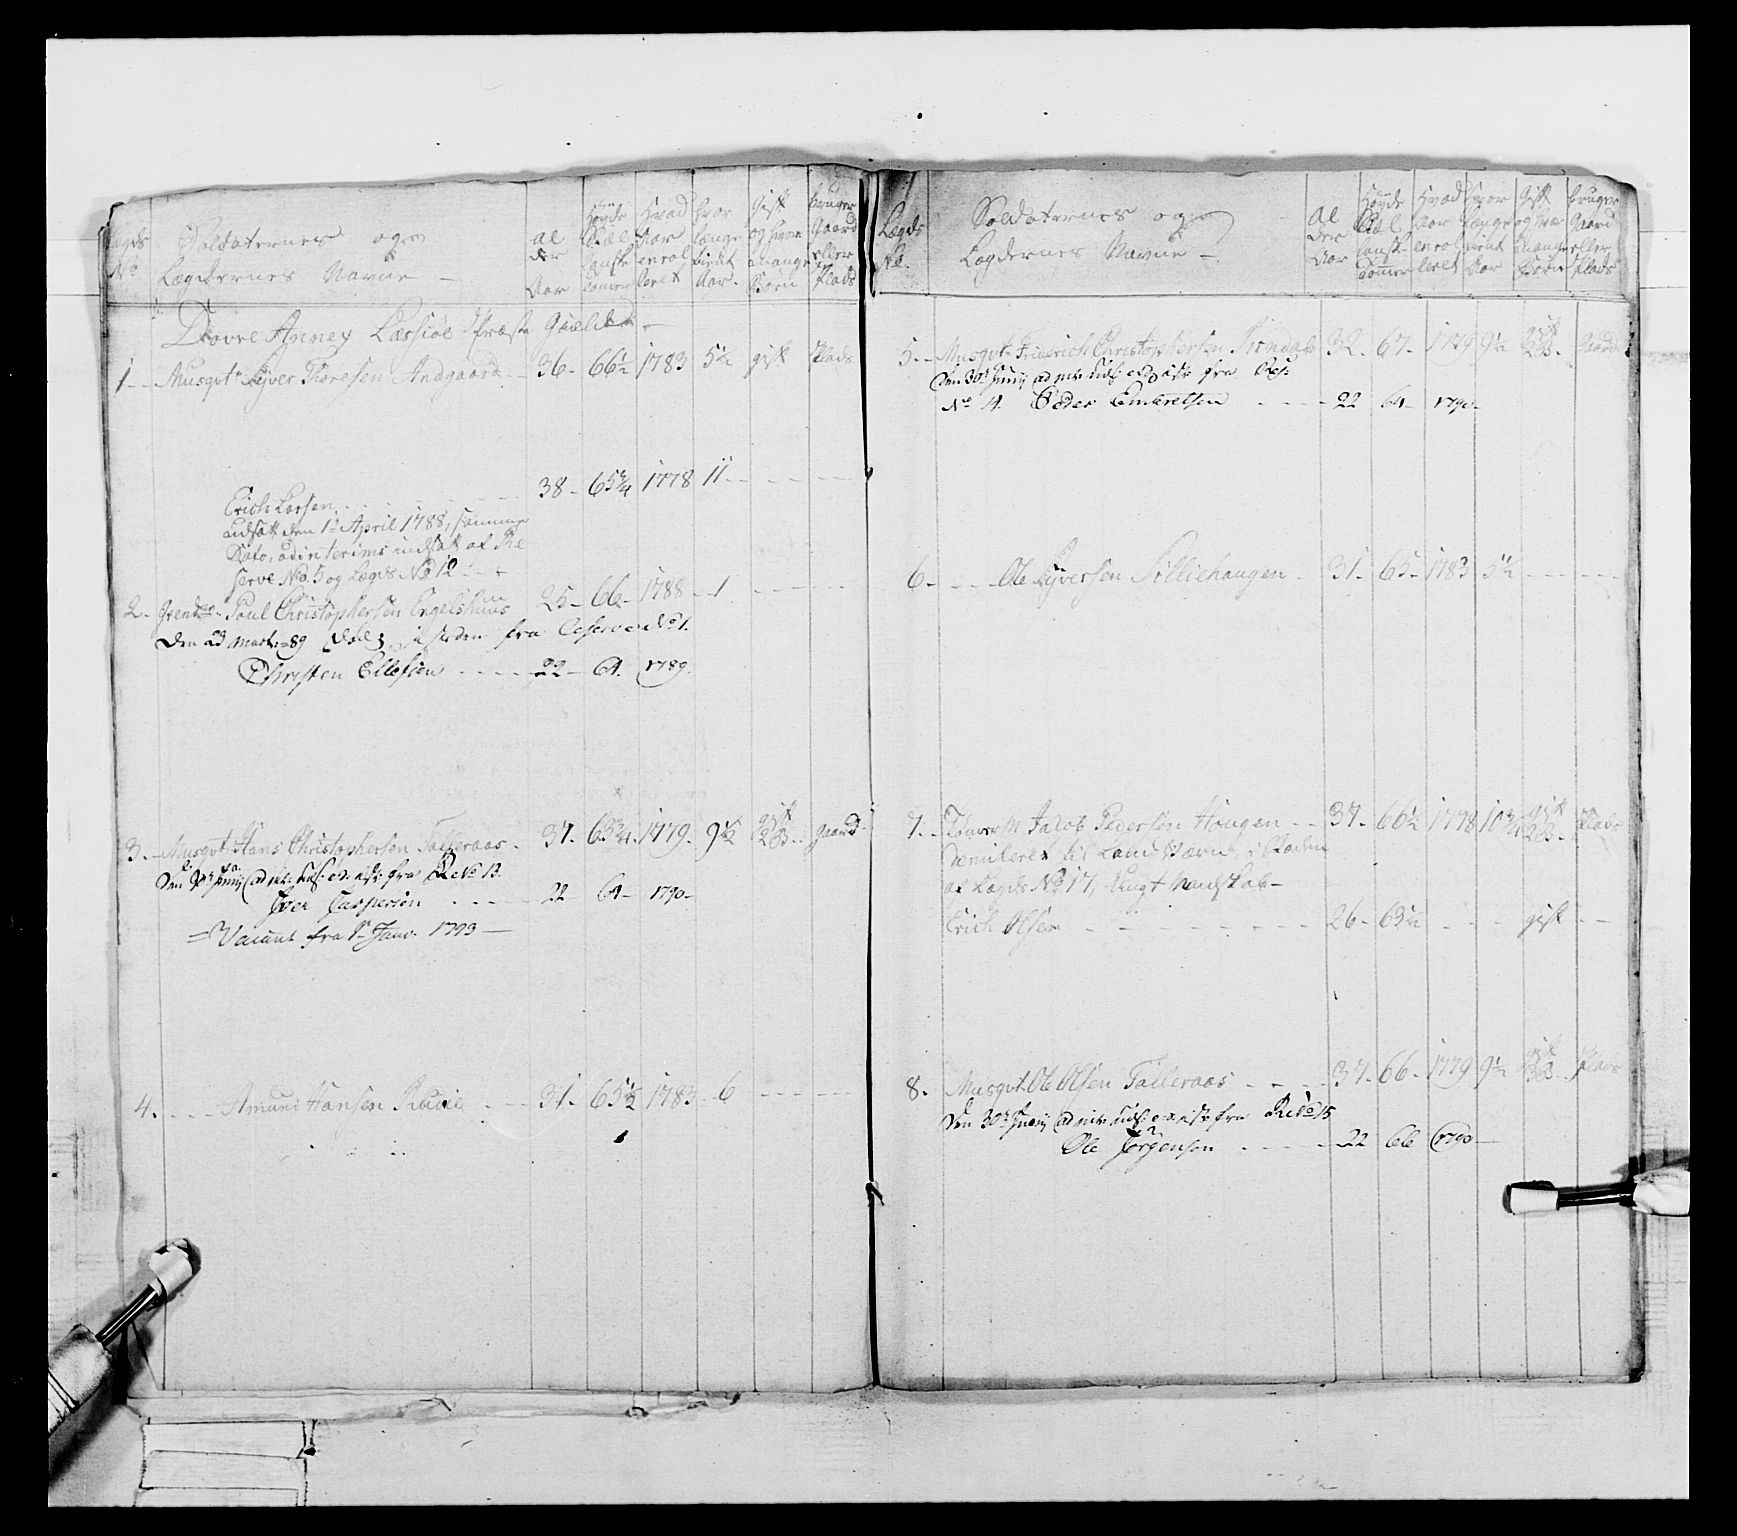 Lægds No
Soldaternes og Lægdernes Navne
Al der Aar
Høyde Sæl landske Tommer
Hvad Aar enrol leret
hvor længe tient Aar.
Gift og hvor mange Børn
bruger Gaard eller Plads
Dovre Annex Læssiøe Præste Giældet
1 Musqvt. Syver Thoresen Andgaard 36 66½ 1783 5½ gift Plads
Erich Larsen 38 65¾ 1778 11
udsatt den 1te April 1788, samme
Dato, ad interims indsatt af Re
serve No. 5 og Lægds No 12
2 Poul Christophersen Engelshuus 25 66 1788 1
Den 29 Martz 89 i steden fra Reserve No 1.
Christen Ellefsen 22 64 1789.
3. Musqvt. Hans Christophersen Talleraas 37 63¾ 1779 9½ gift 2 B. gaard
Den 30t Junij ad int: inds: fra Re No 13.
Iver Jespersen 22 64 1790
Vacant fra 1te Janv. 1793
4. Amund Hansen 31 65½ 1783 6
Lægds No.
Soldaternes og Lægdernes Navne
Al der Aar
Høyde Sæl landske Tommer
Hvad Aar enrol leret
Hvor længe tient Aar
Gift og hvor mange Børn
bruger Gaard eller Plads
5. Musqvt. Friderich Christophersen 32 67 1779 9½ gift Gaard
Den 30t Junij ad int: inds: fra Res:
No 4. Peder Embretsen 22 64 1790
6 Ole Syversen Tølliehaugen 31 65 1783 5½
7. Jacob Pedersen Hougen 37 66½ 1778 10¾ gift 2 B. Plads
demiteret til Landværn, i Steden
af Lægds No 17, Ungt Mandskab
Erich Olsen 26 63½ gift
8. Musqvt. Ole Olsen Talleraas 37 66 1779 9½ gift 3 B. Plads
Den 30t Junij ad int: inds: fra Re No 15
Ole Jørgensen 22 66 1790